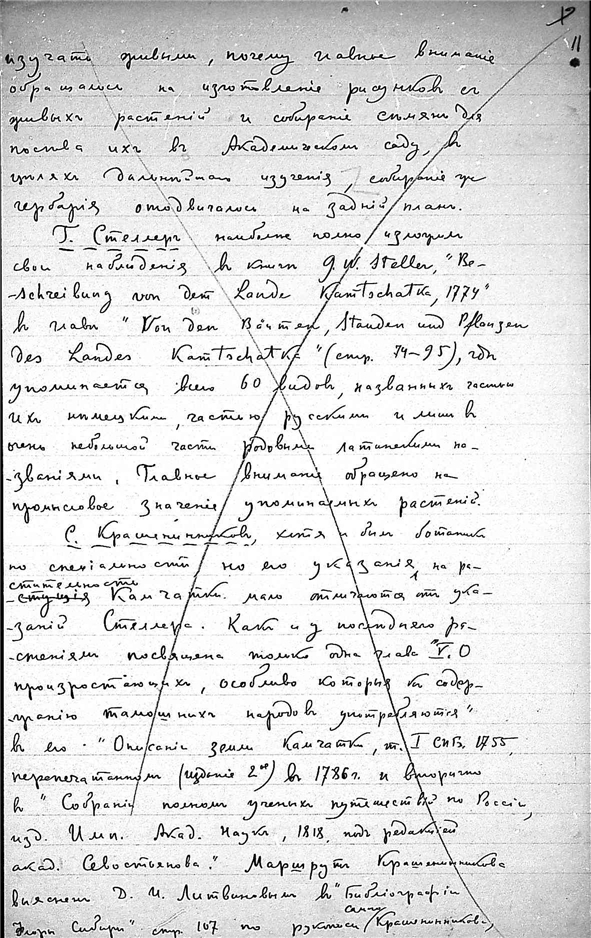 11
изучать живыми, почему главное вниманіе
обращалось на изготовленіе рисунковъ съ
живыхъ растеній и собираніе сѣмянъ для
посѣва ихъ въ Академическомъ саду, въ
цѣляхъ дальнѣйшаго изученія, собираніе же
гербарія отодвигалось на задній планъ.
Г. Стеллеръ наиболѣе полно изложилъ
свои наблюденія въ книгѣ G. W. Steller, "Be-
-schreibung von dem Lande Kamtschatka, 1774"
въ главѣ "Von den Bäumen, Stauden und Pflanzen
des Landes Kamtschatka" (стр. 74-95), гдѣ
упоминается всего 60 видовъ, названныхъ частью
ихъ нѣмецкими, частью русскими и лишь въ
очень небольшой части родовыми латинскими на-
-званіями. Главное вниманіе обращено на
промысловое значеніе упоминаемыхъ растеній.
С. Крашенинниковъ, хотя и былъ ботаникъ
по спеціальности, но его указанія, на ра-
стительность
Камчатки мало отличаются отъ ука-
-заній Стеллера. Какъ и у послѣдняго ра-
-стеніямъ посвящена только одна глава "V. О
произростающихъ, особливо которыя къ содер-
-жанію тамошнихъ народовъ употребляются"
въ его "Описаніи земли Камчатки, т. I СПБ. 1755,
перепечатанномъ (изданіе 2ое) въ 1786 г. и вторично
въ "Собраніи полномъ ученыхъ путешествій по Россіи,
изд. Имп. Акад. Наукъ, 1818, подъ редакціей
акад. Севостьянова." Маршрутъ Крашенинникова
выясненъ Д. И. Литвиновымъ въ "Библіографіи
Флоры Сибири" стр. 107 по рукописи самого Крашенинникова,